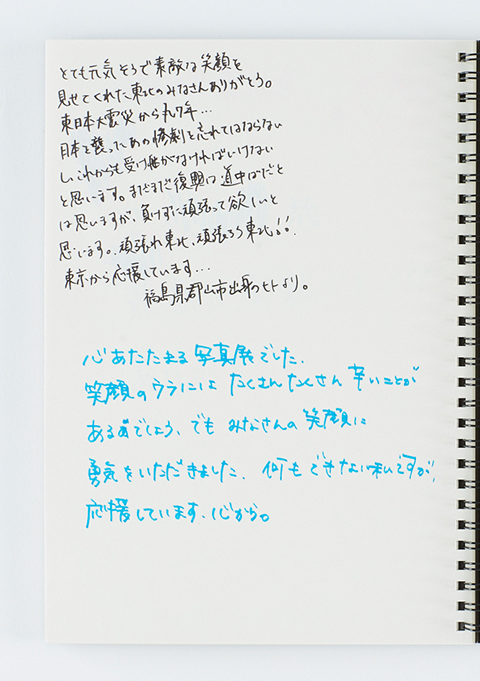 とても元気そうで素敵な笑顔を
見せてくれた東北のみなさんありがとう。
東日本大震災から丸7年…
日本を襲ったあの惨劇を忘れてはならない
し、これからも受け継がなければいけない
と思います。まだまだ復興は道中ばだと
は思いますが、負けずに頑張って欲しいと
思います。頑張れ東北、頑張ろう東北!!
東京から応援しています…
福島県郡山市出身のヒトより。
心あたたまる写真展でした。
笑顔のウラにはたくさんたくさん辛いことが
あるのでしょう、でもみなさんの笑顔に
勇気をいただきました、何もできない私ですが、
応援しています、心から。